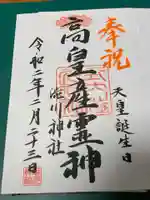 奉祝
天皇誕生日
高皇産霊神
渋川神社
令和二年二月二十三日